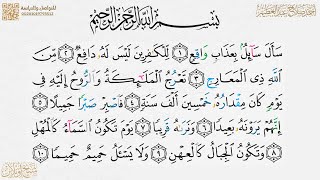 للتواصل والدراسة
بِسْمِ ٱللَّهِ ٱلرَّحْمَٰنِ ٱلرَّحِيمِ
سَأَلَ سَآئِلٌۢ بِعَذَابٍ وَاقِعٍ ١ لِّلْكَٰفِرِينَ لَيْسَ لَهُۥ دَافِعٌ ٢ مِّنَ
ٱللَّهِ ذِى ٱلْمَعَارِجِ ٣ تَعْرُجُ ٱلْمَلَٰٓئِكَةُ وَٱلرُّوحُ إِلَيْهِ فِى
يَوْمٍ كَانَ مِقْدَارُهُۥ خَمْسِينَ أَلْفَ سَنَةٍ ٤ فَٱصْبِرْ صَبْرًا جَمِيلًا ٥
إِنَّهُمْ يَرَوْنَهُۥ بَعِيدًا ٦ وَنَرَىٰهُ قَرِيبًا ٧ يَوْمَ تَكُونُ ٱلسَّمَآءُ كَٱلْمُهْلِ
٨ وَتَكُونُ ٱلْجِبَالُ كَٱلْعِهْنِ ٩ وَلَا يَسْـَٔلُ حَمِيمٌ حَمِيمًا ١٠